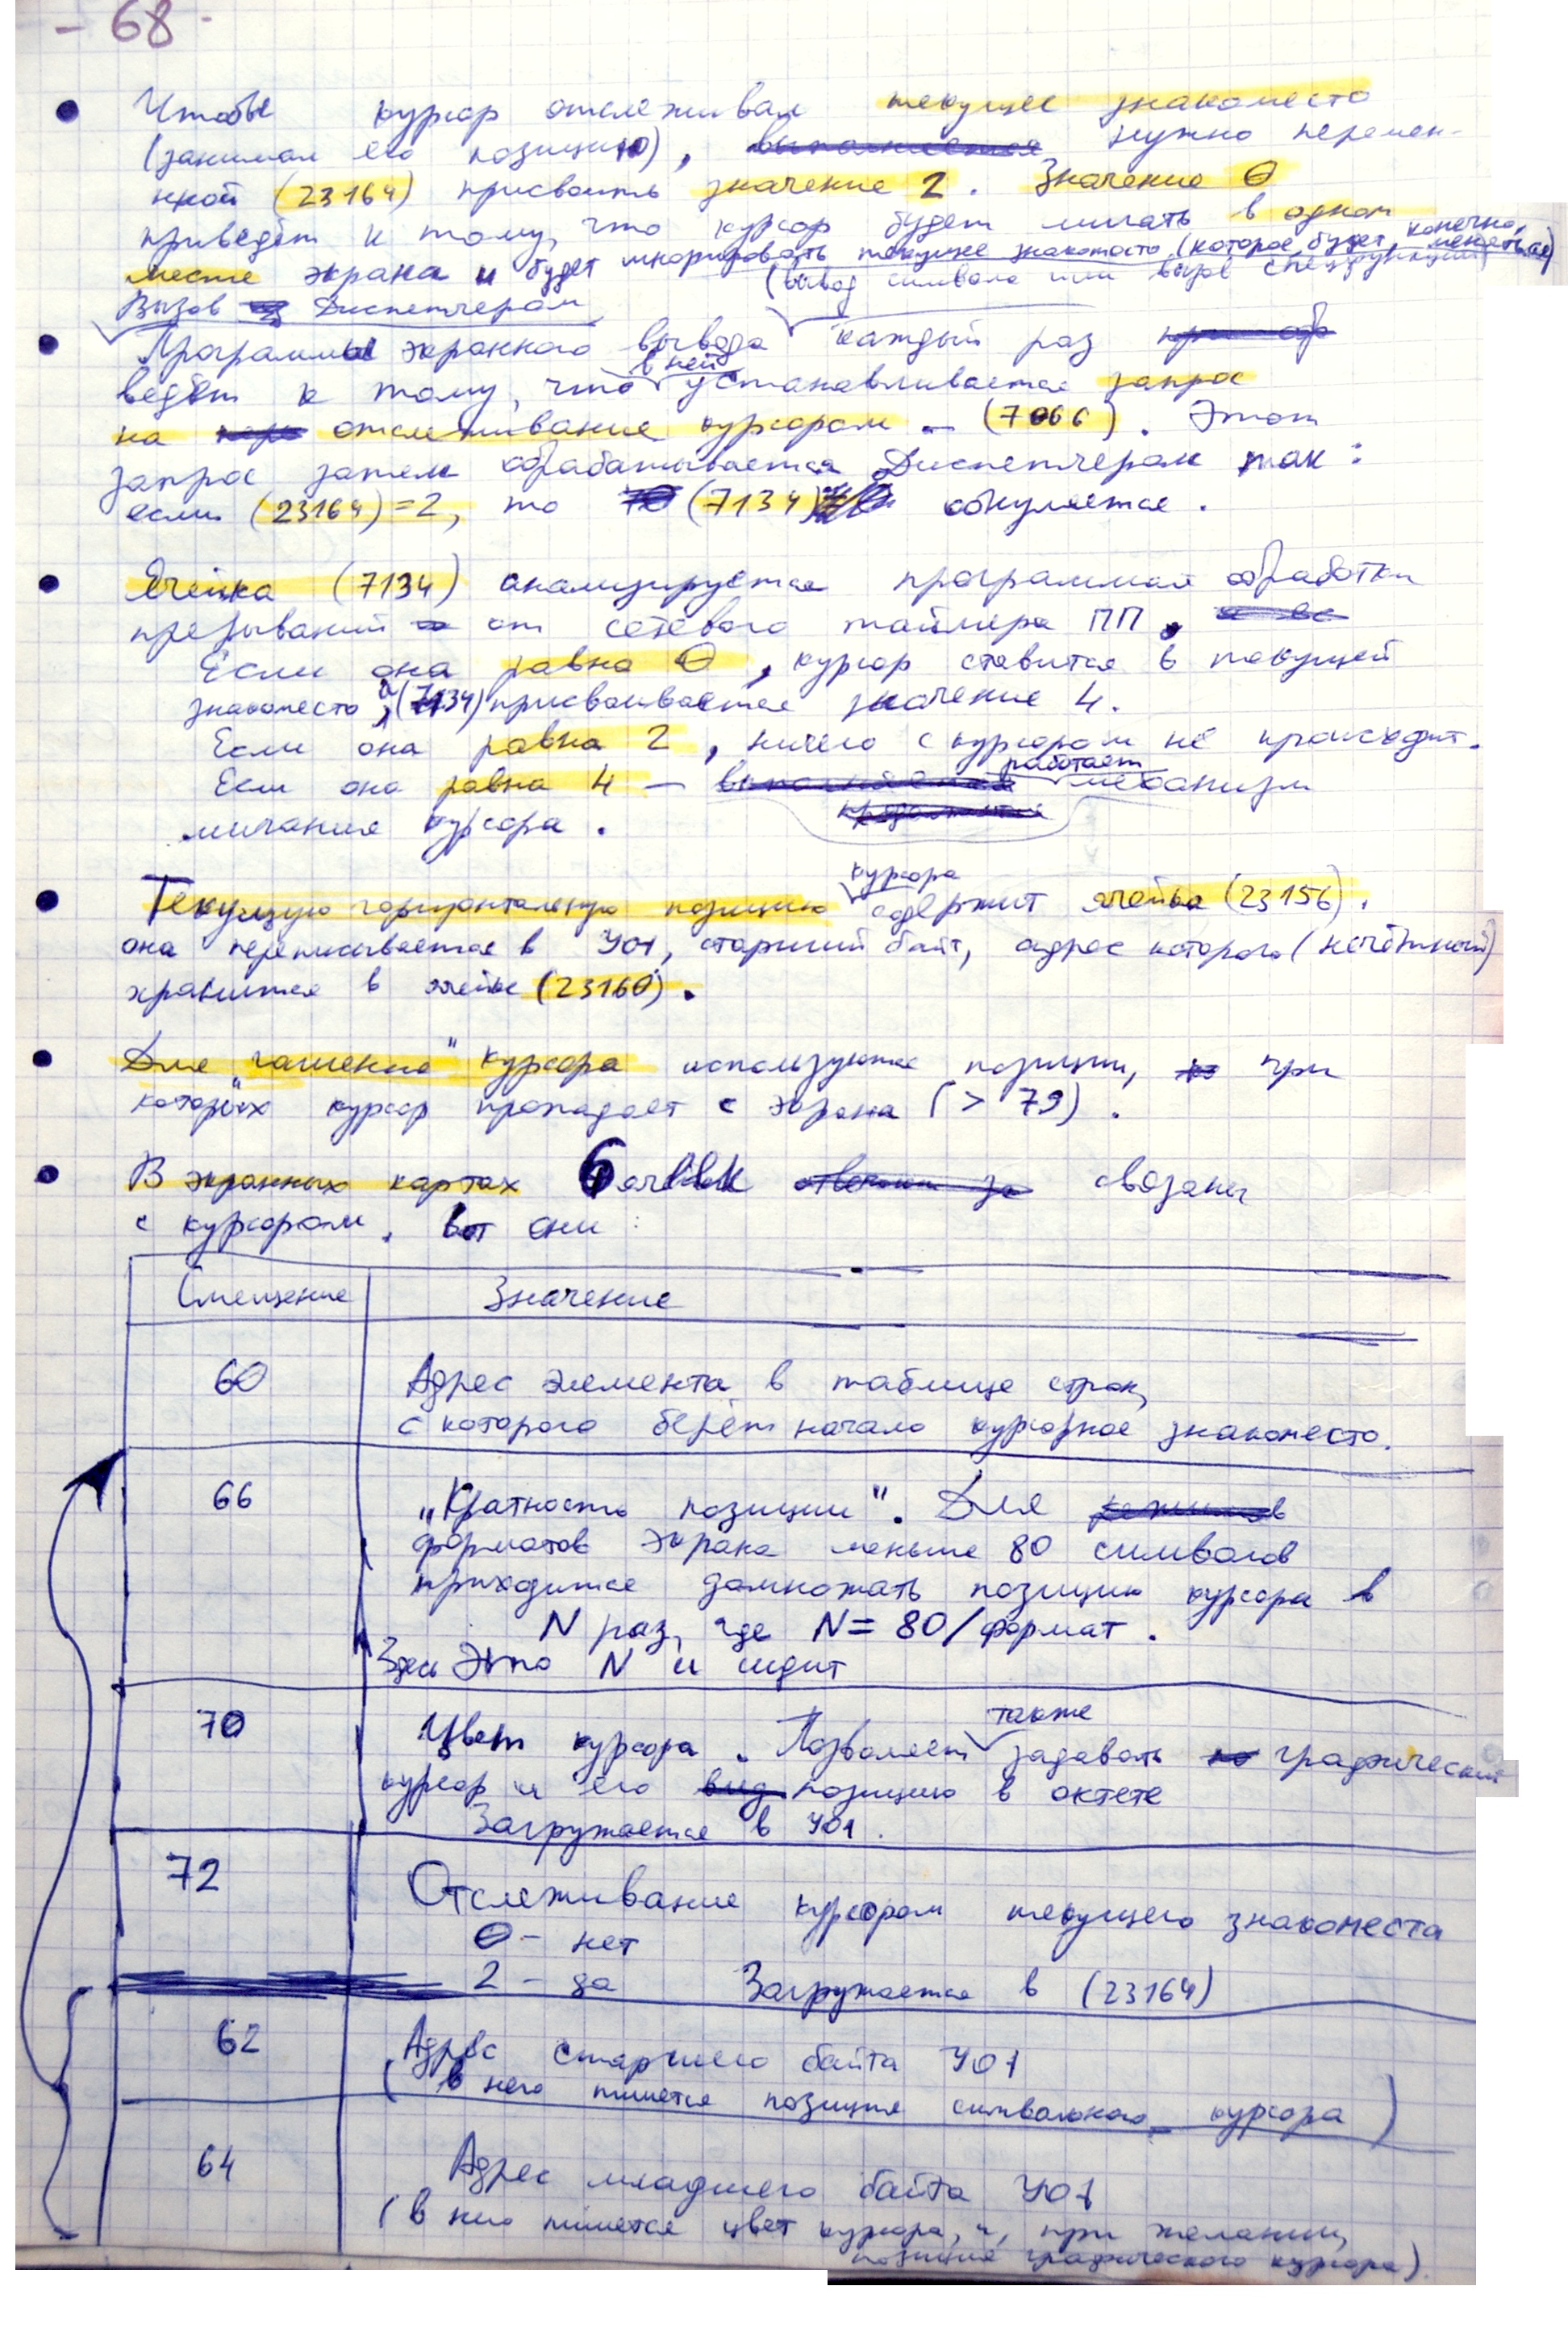 - 68 -
Чтобы курсор отслеживал текущее знакоместо
(занимал его позицию), выполняется нужно перемен-
нной (23164) присвоить значение 2. Значение 0
приведёт к тому, что курсор будет мигать в одном
месте экрана и будет игнорировать текущее знакоместо (которое будет, конечно, меняться)
(вывод символа или вызов спецфункции)
Вызов Диспетчером
Программы экранного вывода каждый раз
ведёт к тому, что в ней устанавливается запрос
на отслеживание курсором - (7066). Этот
запрос затем обрабатывается Диспетчером так:
если (23164)=2, то (7134) обнуляется.
Ячейка (7134) анализируется программой обработки
прерываний от сетевого таймера ПП.
Если она равна 0, курсор ставится в текущей
знакоместо, а (7134) присваивается значение 4.
Если она равна 2, ничего с курсором не происходит.
Если она равна 4 - выполняется работает механизм
мигания курсора.
Текущую горизонтальную позицию курсора содержит ячейка (23156).
она переписывается в УО1, старший байт, адрес которого (нечётный)
хранится в ячейке (23160).
Для "гашения" курсора используются позиции, при
которых курсор пропадает с экрана (> 79).
В экранных картах 6 ячеек отвечают за связаны
с курсором. Вот они:
Смещение Значение
60 Адрес элемента в таблице строк,
с которого берёт начало курсорное знакоместо.
66 „Кратность позиции". Для режимов
форматов экрана меньше 80 символов
приходится домножать позицию курсора в
N раз, где N = 80/формат.
Здесь это N и сидит
70 Цвет курсора. Позволяет также задавать графический
курсор и его вид позицию в октете
Загружается в УО1.
72 Отслеживание курсором текущего знакоместа
0 - нет
2 - да Загружается в (23164)
62 Адрес старшего байта УО1
(в него пишется позиция символьного курсора)
64 Адрес младшего байта УО1
(в него пишется цвет курсора, и, при желании,
позиция графического курсора).